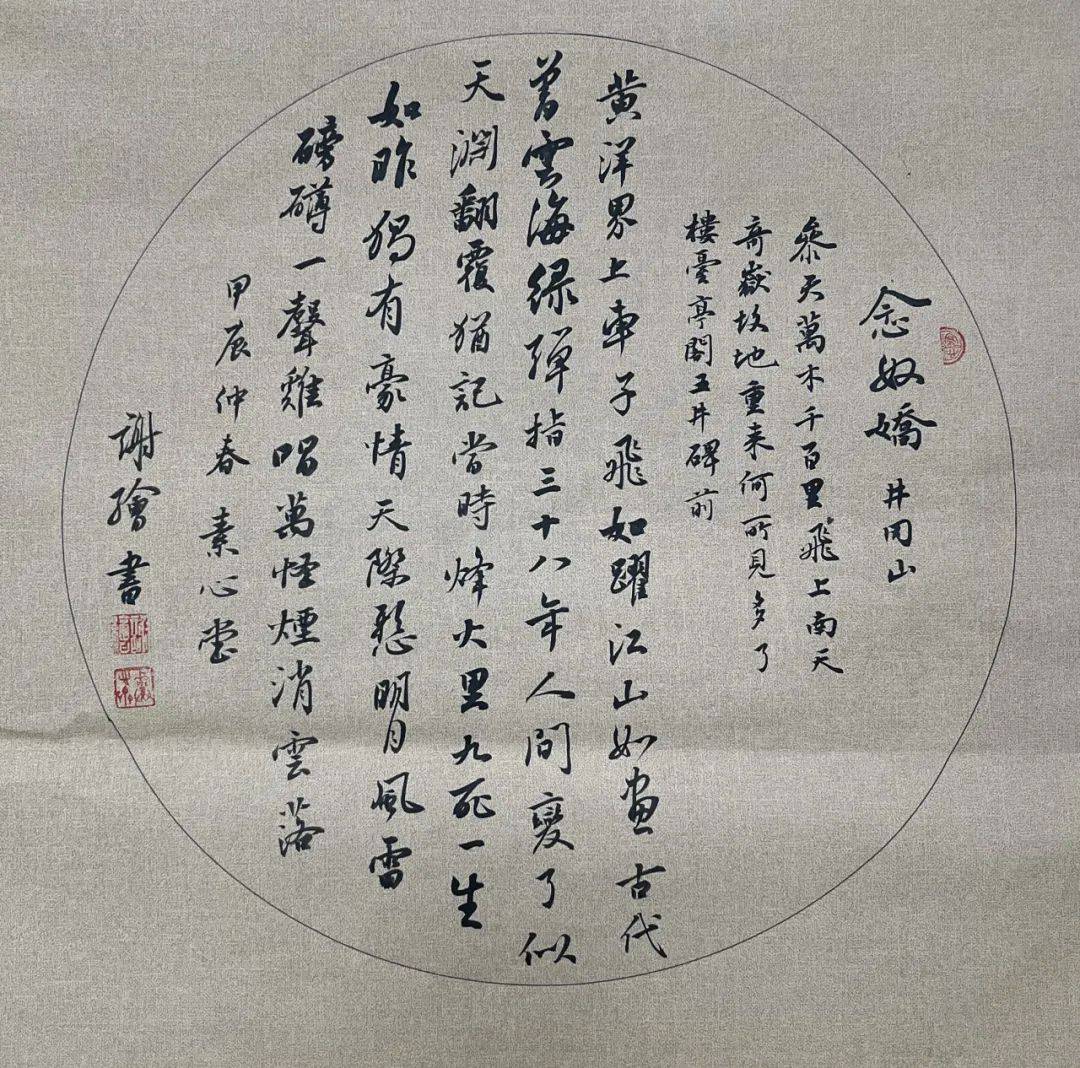 念奴嬌 井岡山
參天萬木千百里飛上南天
奇嶽故地重来何所見多了
樓臺亭閣五井碑前
黄洋界上車子飛如躍江山如畫古代
曾雲海緑彈指三十八年人間變了似
天淵翻覆猶記當時烽火里九死一生
如昨獨有豪情天際懸明月風雷
磅礴一聲雞唱萬怪煙消雲落
甲辰仲春 素心堂
謝繪書